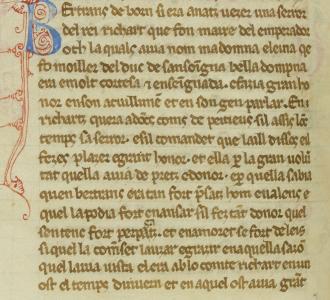 Bertrans de born si era anatz uezer una seror
del rei richart que fon maire del emperador
oth la quals auia nom ma dompna eleina qe
fo moiller del duc de sansoingna bella dompna
era e molt cortesa e enseingnada. e fazia gran ho
nor en son acuillimen e en son gen parlar. En
richartz quera adoncs coms de peitieus si l assis lonc
temps sa seror. e sil comandet que ill disses el
fezes plazer e gran honor. et ella per la gran uolun
tat quella auia de pretz e donor. e per quella sabia
quen bertrans era tan fort prezatz hom e ualens e
quel la podia fort enansar. sil fetz tan donor quel
sen tenc fort per pagatz. et enamoret se fort de leis
si quel la comenset lauzar e grazir en aquella sazon
quel lauia uista. el era ab lo comte richart en un
ost el temps diuern et en aquel ost auia gran